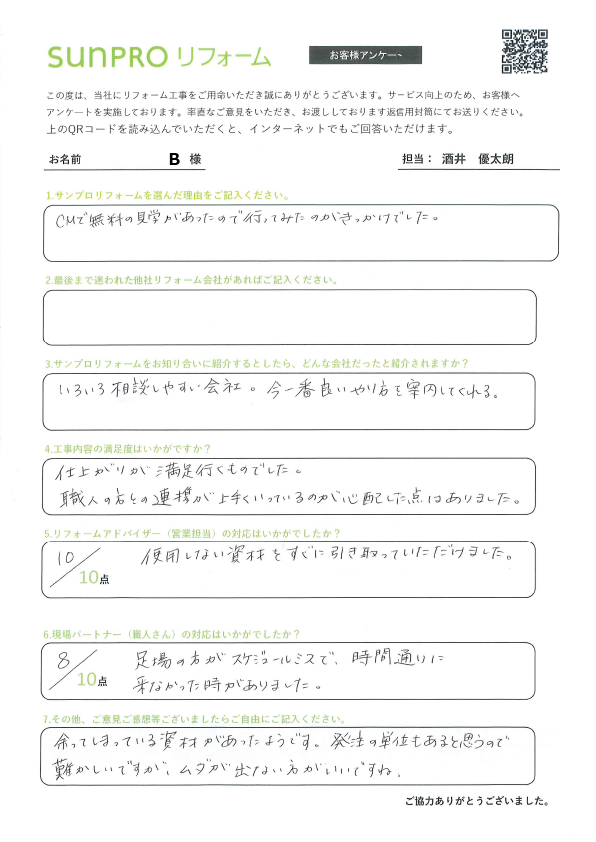 sunpro リフォーム
お客様アンケート
この度は、当社にリフォーム工事をご用命いただき誠にありがとうございます。サービス向上のため、お客様へ
アンケートを実施しております。率直なご意見をいただき、お渡ししております返信用封筒にてお送りください。
上のQRコードを読み込んでいただくと、インターネットでもご回答いただけます。
お名前 B 様 担当： 酒井 優太朗
1.サンプロリフォームを選んだ理由をご記入ください。
CMで無料の見学があったので行ってみたのがきっかけでした。
2.最後まで迷われた他社リフォーム会社があればご記入ください。
3.サンプロリフォームをお知り合いに紹介するとしたら、どんな会社だったと紹介されますか？
いろいろ相談しやすい会社。今一番良いやり方を案内してくれる。
4.工事内容の満足度はいかがですか？
仕上がりが満足行くものでした。
職人の方との連携が上手くいっているのが心配した点はありました。
5.リフォームアドバイザー（営業担当）の対応はいかがでしたか？
10/10点 使用しない資材をすぐに引き取っていただけました。
6.現場パートナー（職人さん）の対応はいかがでしたか？
8/10点 足場の方がスケジュールミスで、時間通りに
来なかった時がありました。
7.その他、ご意見ご感想等ございましたらご自由にご記入ください。
余ってしまっている資材があったようです。発注の単位もあると思うので
難かしいですが、ムダが出ない方がいいですね。
ご協力ありがとうございました。